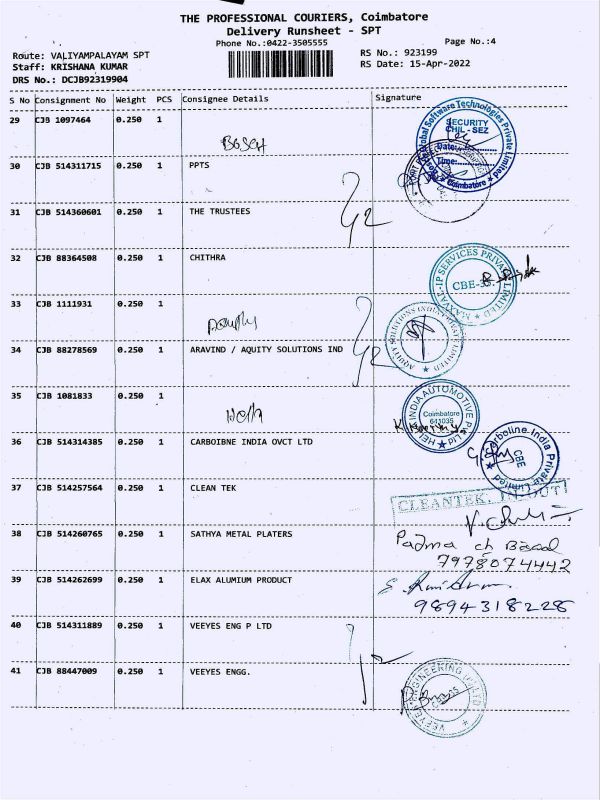 THE PROFESSIONAL COURIERS, Coimbatore
Delivery Runsheet - SPT
Phone No.:0422-3505555
Page No.:4
Route: VALIYAMPALAYAM SPT
RS No.: 923199
Staff: KRISHANA KUMAR
RS Date: 15-Apr-2022
DRS No.: DCJB92319904
S No Consignment No Weight PCS Consignee Details Signature
29 CJB 1097464 0.250 1
SECURITY
CHIL - SEZ
Date:
Time:
Coimbatore
BOSCH
30 CJB 514311715 0.250 1 PPTS
31 CJB 514360601 0.250 1 THE TRUSTEES
32 CJB 88364508 0.250 1 CHITHRA
CBE-35
33 CJB 1111931 0.250 1
34 CJB 88278569 0.250 1 ARAVIND / AQUITY SOLUTIONS IND
AQUITY SOLUTIONS INDIA PRIVATE LIMITED
35 CJB 1081833 0.250 1
HEI INDIA AUTOMOTIVE P LTD
Coimbatore
641035
36 CJB 514314385 0.250 1 CARBOIBNE INDIA OVCT LTD
Carboline India Private Limited
CBE
37 CJB 514257564 0.250 1 CLEAN TEK
CLEANTEK: IN/OUT
38 CJB 514260765 0.250 1 SATHYA METAL PLATERS
Padma ch
7978074442
39 CJB 514262699 0.250 1 ELAX ALUMIUM PRODUCT
9894318228
40 CJB 514311889 0.250 1 VEEYES ENG P LTD
41 CJB 88447009 0.250 1 VEEYES ENGG.
VEEYES ENGINEERING (P) LTD